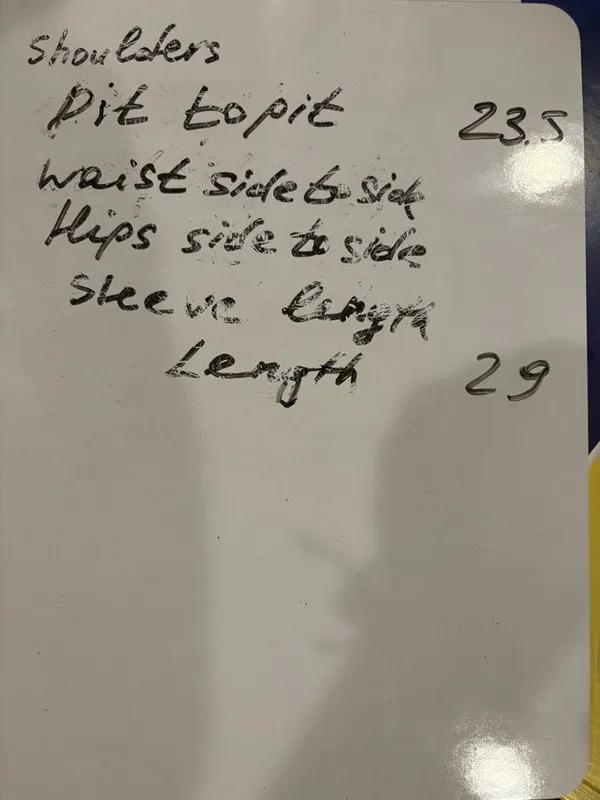 shoulders
Pit to pit 23.5
waist side to side
Hips side to side
Sleeve length
Length 29